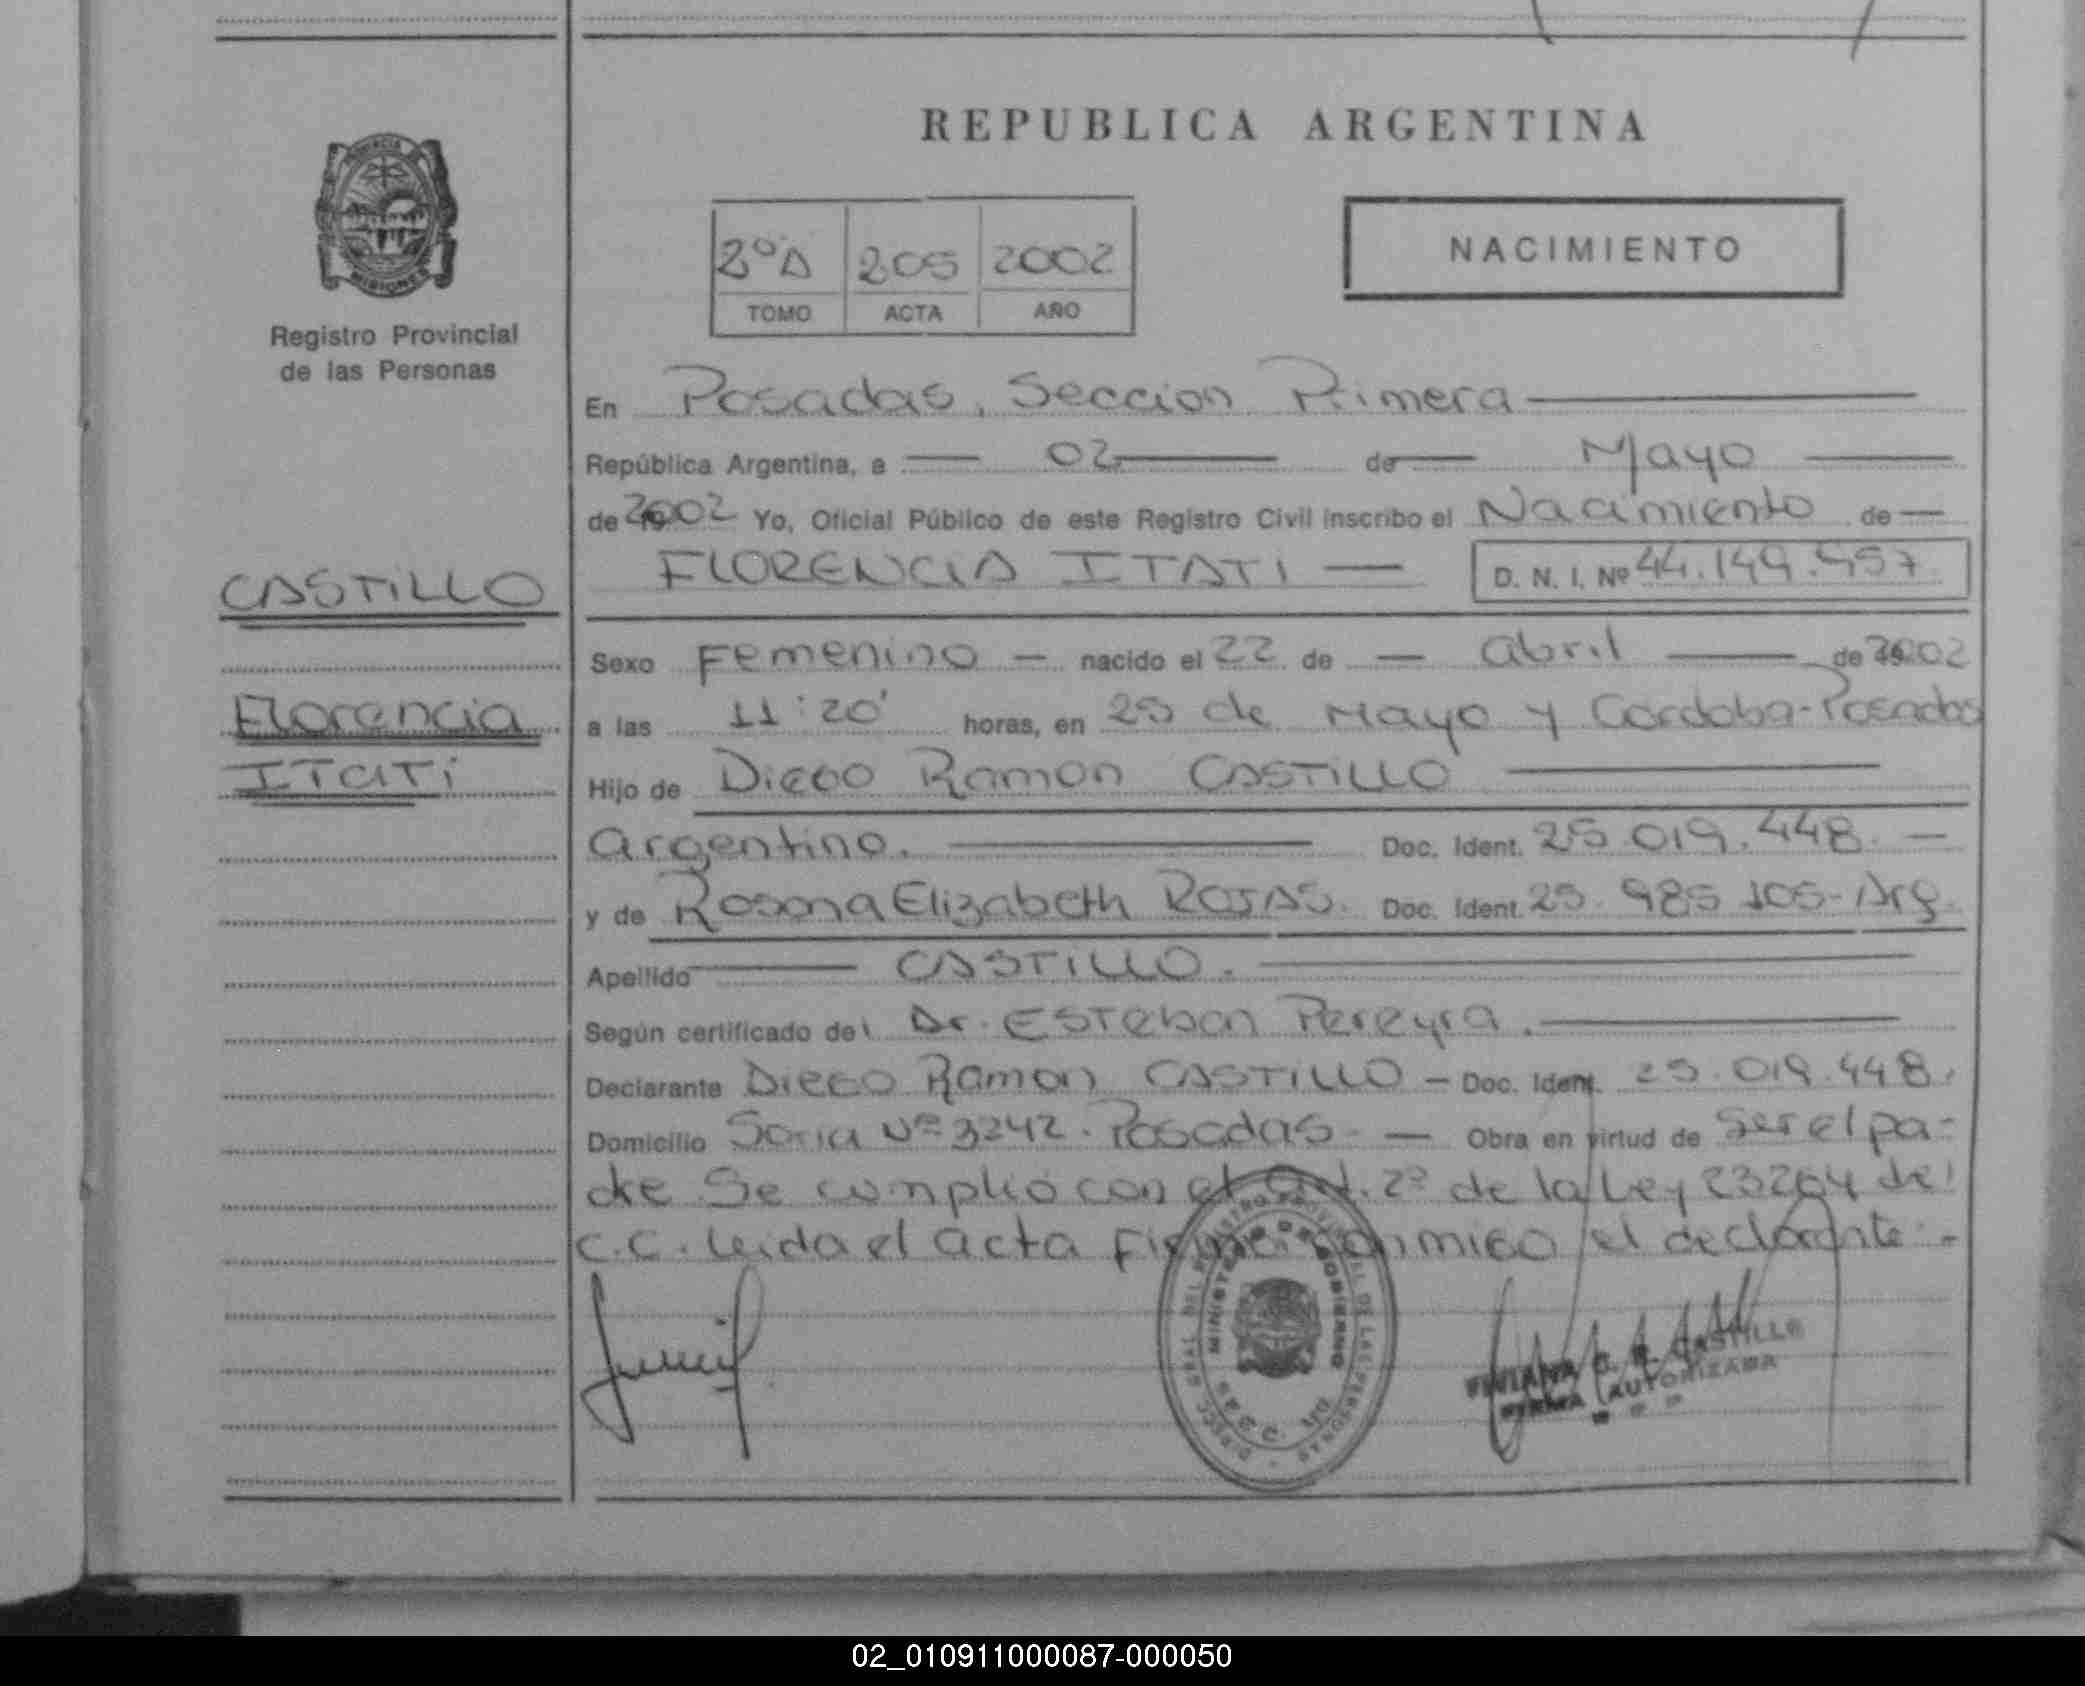 REPUBLICA ARGENTINA
PROVINCIA
MISIONES
Registro Provincial
de las Personas
2ºA 205 2002
TOMO ACTA AÑO
NACIMIENTO
En Posadas, Seccion Primera
República Argentina, a 02 de Mayo
de 2002 Yo, Oficial Público de este Registro Civil inscribo el Nacimiento de
CASTILLO
FLORENCIA ITATI D. N. I. Nº 44.149.457
Sexo Femenino nacido el 22 de abril de 2002
Florencia
a las 11:20' horas, en 25 de Mayo y Cordoba-Posadas
Itati
Hijo de Diego Ramon CASTILLO
argentino. Doc. Ident. 25.019.448.
y de Rosana Elizabeth ROJAS. Doc. Ident. 25.985 105-Arg.
Apellido CASTILLO.
Según certificado del Dr. Esteban Pereyra.
Declarante Diego Ramon CASTILLO - Doc. Ident. 25.019.448.
Domicilio Soria Nº 3242. Posadas- Obra en virtud de ser el pa-
dre Se cumplió con el art. 2º de la Ley 23264 del
C.C. leida el acta firma conmigo el declarante.-
MINISTERIO DE GOBIERNO
VIVIANA C. R. CASTILLO
FIRMA AUTORIZADA
02_010911000087-000050